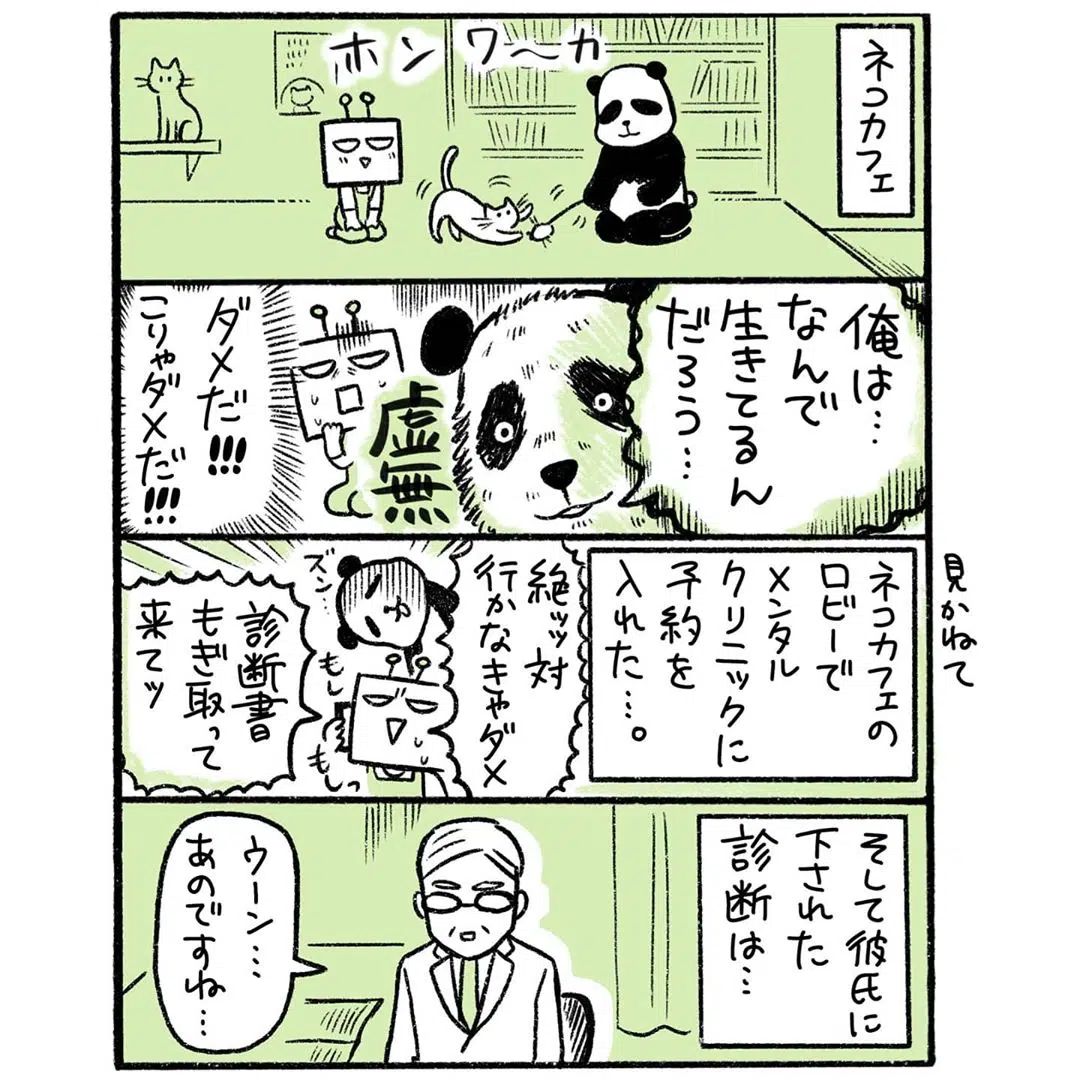 ネコカフェ
ホンワ〜カ
俺は…
なんで
生きてるん
だろう…
虚無
ダメだ!!!
こりゃダメだ!!!
見かねて
ネコカフェの
ロビーで
メンタル
クリニックに
予約を
入れた…。
絶ッッ対
行かなきゃダメ
ズン…
もしもしっ
診断書
もぎ取って
来てッ
そして彼氏に
下された
診断は…
ウーン…
あのですね…